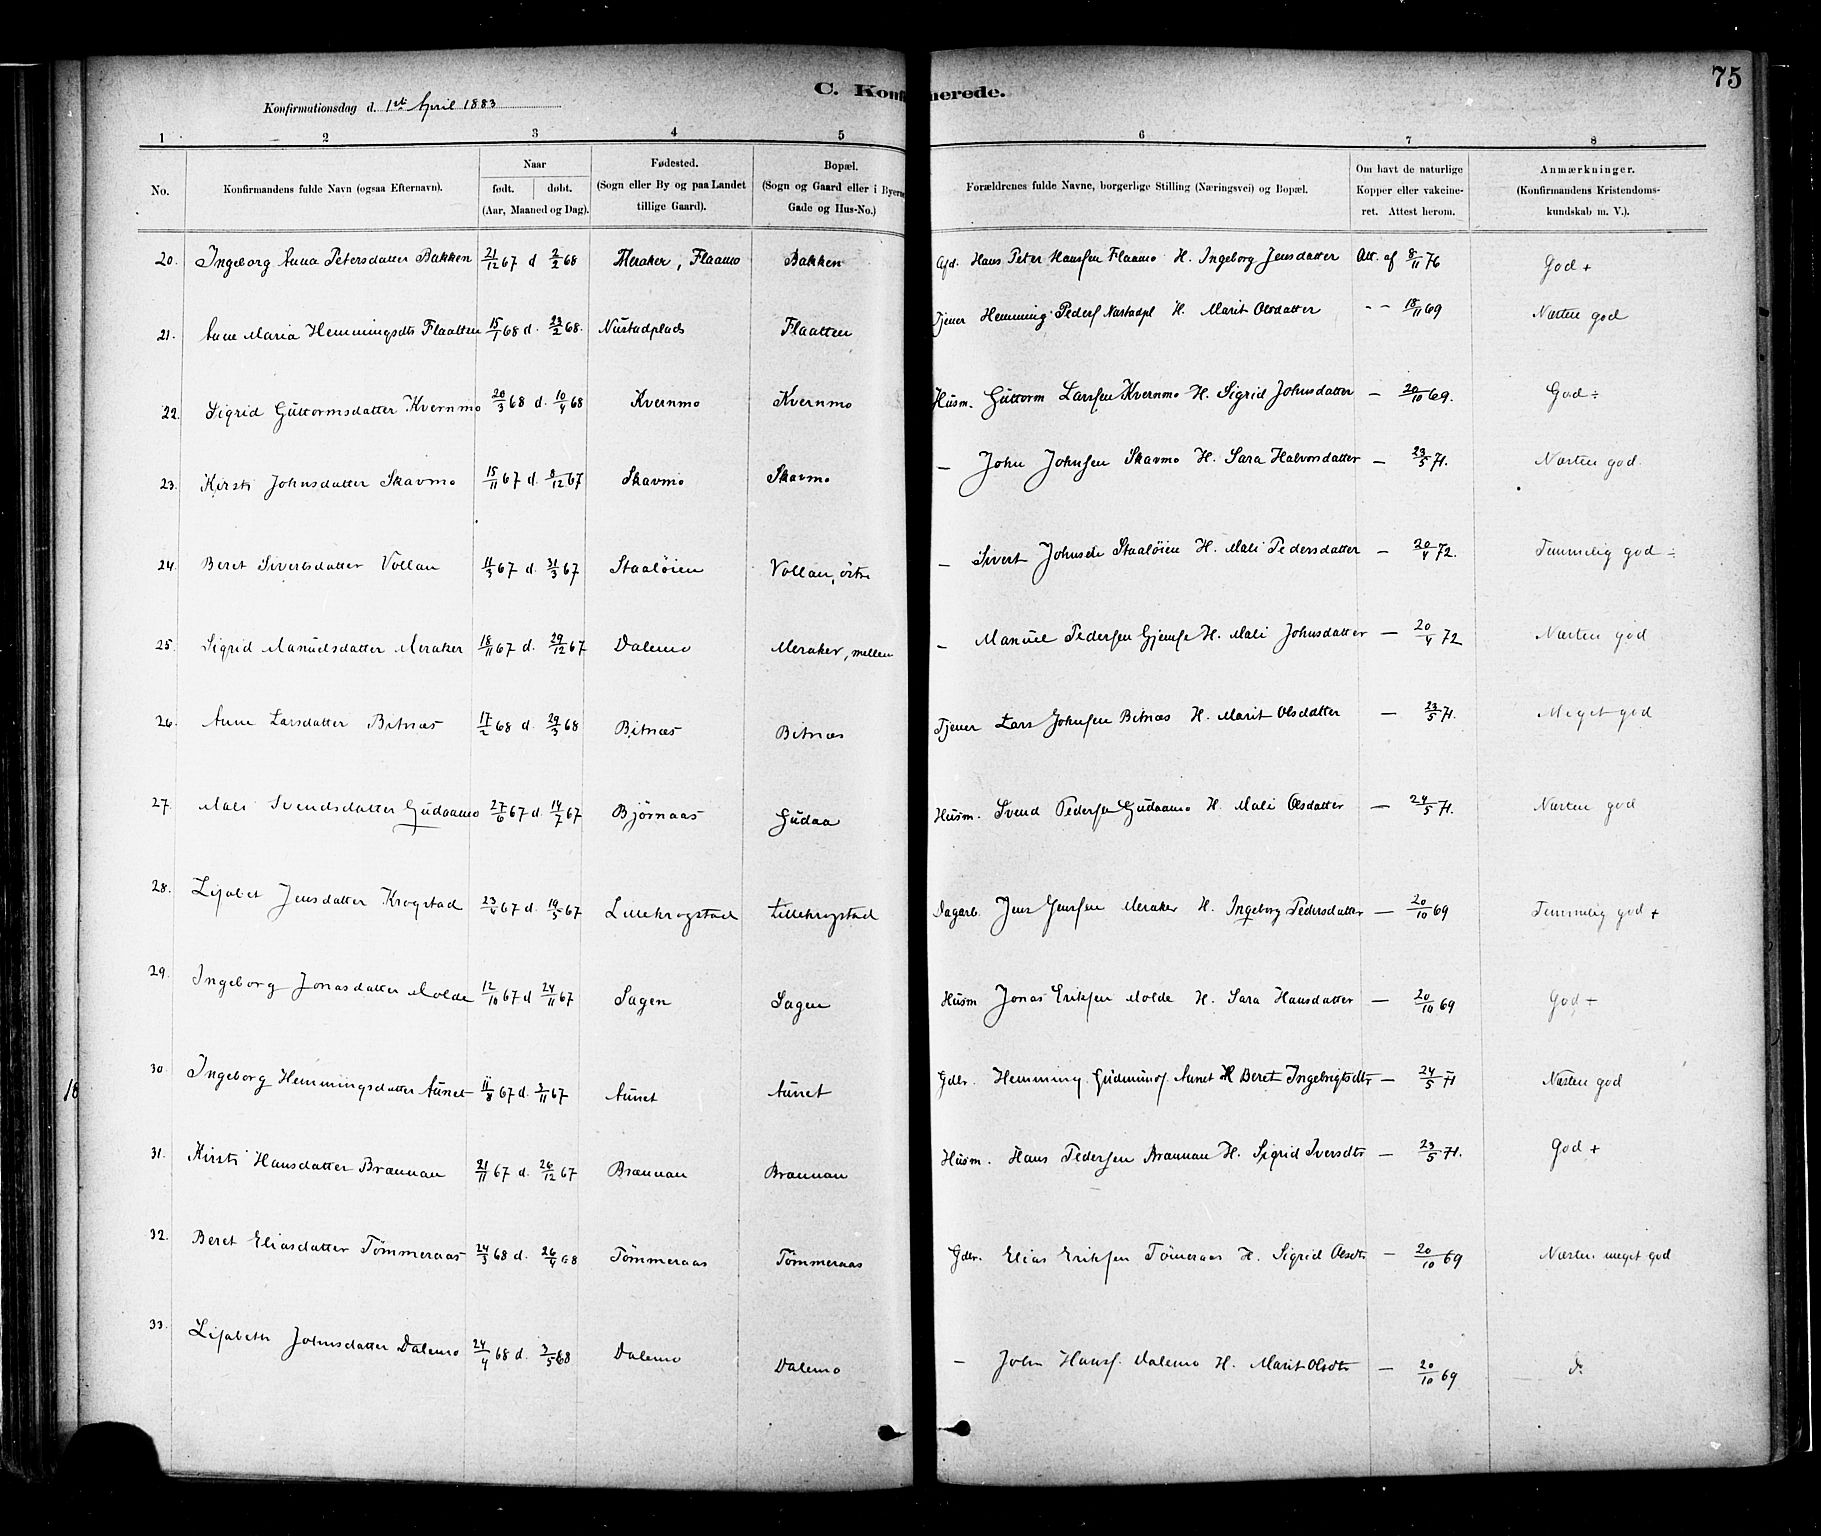 75
C. Konf merede.
Konfirmationsdag d. 1st April 1883
1 2 3 4 5 6 7 8
No. Konfirmandens fulde Navn (ogsaa Efternavn). Naar født. døbt. (Aar, Maaned og Dag). Fødested. (Sogn eller By og paa Landet tillige Gaard). Bopæl. (Sogn og Gaard eller i Byerne Gade og Hus-No.) Forældrenes fulde Navne, borgerlige Stilling (Næringsvei) og Bopæl. Om havt de naturlige Kopper eller vakcineret. Attest herom. Anmærkninger. (Konfirmandens Kristendomskundskab m. V.).
20. Ingeborg Anna Petersdatter Bakken 21/12 67 d 2/2 68 Meraker, Flaamo Bakken Hans Peter Hansen Flaamo H. Ingeborg Jensdatter Att. af 8/11 76 God +
21. Anne Maria Hemmingsdtr Flaatten 15/1 68 d. 23/2 68. Nustadplads Flaatten Tjener Hemming Peders Nustadpl H. Marit Olsdatter - - 18/11 69 Næsten god
22. Sigrid Guttormsdatter Kvernmo 20/3 68 d. 10/4 68 Kvernmo Kvernmo Husm. Guttorm Larssen Kvernmo H. Sigrid Johnsdatter — 20/10 69. God ÷
23. Kirsti Johnsdatter Skavmo 15/11 67 d. 8/12 67 Skavmo Skavmo — John Johnsen Skavmo H. Sara Halvorsdatter — 23/5 71. Næsten god.
24. Beret Sivertsdatter Vollan 11/3 67 d. 31/3 67 Staaløien Vollan, östre — Sivert Johnsen Staaløien H. Mali Pedersdatter — 20/4 72. Temmelig god ÷
25. Sigrid Manuelsdatter Meraker 18/11 67 d. 29/12 67 Dalemo Meraker, mellem — Manuel Pedersen Gjemse H. Mali Johnsdatter — 20/4 72 Næsten god
26. Anne Larsdatter Bitnæs 17/2 68 d. 29/3 68 Bitnæs Bitnæs Tjener Lars Johnsen Bitnæs H. Marit Olsdatter — 23/5 71. Meget god
27. Mali Svendsdatter Gudaamo 27/6 67 d. 14/7 67 Bjørnaas Gudaa Husm. Svend Pedersen Gudaamo H. Mali Olsdatter — 24/5 71. Næsten god
28. Lisabet Jensdatter Krogstad 23/4 67 d. 19/5 67 Lillekrogstad Lillekrogstad Dagarb. Jens Jensen Meraker H. Ingeborg Pedersdatter — 20/10 69 Temmelig god +
29. Ingeborg Jonasdatter Molde 12/10 67 d 24/11 67 Sagen Sagen Husm Jonas Eriksen Molde H. Sara Hansdatter — 20/10 69 God +
30. Ingeborg Hemmingsdatter Aunet 11/8 67 d. 3/11 67 Aunet Aunet Gdbr. Hemming Gudmunds. Aunet H Beret Ingebrigtsdtr — 24/5 71 Næsten god
18
31. Kirsti Hansdatter Brænnan 21/11 67 d. 26/12 67 Brænnan Brænnan Husm. Hans Pedersen Brænnan H. Sigrid Iversdtr — 23/5 71. God +
32. Beret Eliasdatter Tömmeraas 24/3 68 d. 26/4 68 Tömmeraas Tömmeraas Gdbr. Elias Eriksen Tömeraas H. Sigrid Olsdtr — 20/10 69 Næsten meget god
33. Lisabeth Johnsdatter Dalemo 24/4 68 d. 3/5 68 Dalemo Dalemo — John Hans. Dalemo H. Marit Olsdtr — 20/10 69 do